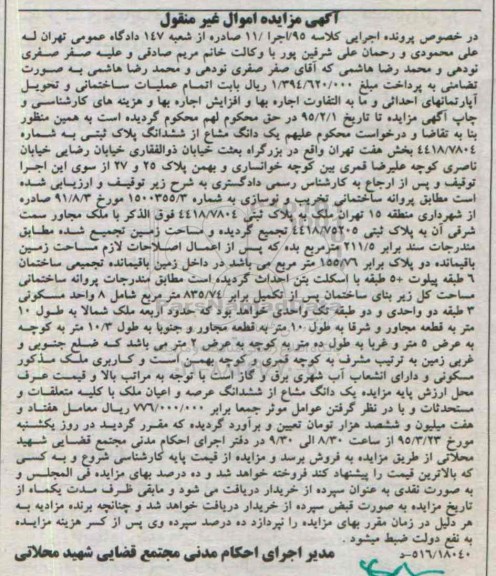 آگهی مزایده اموال غیر منقول
در خصوص پرونده اجرایی کلاسه ۹۵/اجرا /۱۱ صادره از شعبه ۱۴۷ دادگاه عمومی تهران له
علی محمودی و رحمان علی شرفین پور با وکالت خانم مریم صادقی و علیه صفر صفری
نودهی و محمد رضا هاشمی که آقای صفر صفری نودهی و محمد رضا هاشمی به صورت
تضامنی به پرداخت مبلغ ۱/۳۹۴/۶۲۰/۰۰۰ ریال بابت اتمام عملیات ساختمانی و تحویل
آپارتمانهای احداثی و ما به التفاوت اجاره بها و افزایش اجاره بها و هزینه های کارشناسی و
چاپ آگهی مزایده تا تاریخ ۹۵/۲/۱ در حق محکوم لهم محکوم گردیده است به همین منظور
بنا به تقاضا و درخواست محکوم علیهم یک دانگ مشاع از ششدانگ پلاک ثبتی به شماره
۴۴۱۸/۷۸۰۴ بخش هفت تهران واقع در بزرگراه بعثت خیابان ذوالفقاری خیابان رضایی خیابان
ناصری کوچه علیرضا قمری بین کوچه خوانساری و بهمن پلاک ۲۵ و ۲۷ از سوی این اجرا
توقیف و پس از ارجاع به کارشناس رسمی دادگستری به شرح زیر توقیف و ارزیابی شده
است مطابق پروانه ساختمانی تخریب و نوسازی به شماره ۱۵۰۰۳۵۵/۳ مورخ ۹۱/۸/۳ صادره
از شهرداری منطقه ۱۵ تهران ملک به پلاک ثبتی ۴۴۱۸/۷۸۰۴ فوق الذکر با ملک مجاور سمت
شرقی آن به پلاک ثبتی ۴۴۱۸/۷۵۲۰۵ تجمیع گردیده و مساحت زمین تجمیع شده مطابق
مندرجات سند برابر ۲۱۱/۵ مترمربع بده که پس از اعمال اصلاحات لازم مساحت زمین
باقیمانده دو پلاک برابر ۱۵۵/۷۶ متر مربع می باشد در داخل زمین باقیمانده تجمیعی ساختمان
۶ طبقه پیلوت +۵ طبقه با اسکلت بتن احداث گردیده است مطابق مندرجات پروانه ساختمانی
مساحت کل زیر بنای ساختمان پس از تکمیل برابر ۸۳۵/۷۴ متر مربع شامل ۸ واحد مسکونی
۳ طبقه دو واحدی و دو طبقه تک واحدی خواهد بد که حدود اربعه ملک شمالا به طول ۱۰
متر به قطعه مجاور و شرقا به طول ۱۰ متر به قطعه مجاور و جنوبا به طول ۱۰/۳ متر به کوچه
به عرض ۵ متر و غربا به طول ده متر به کوچه به عرض ۲ متر می باشد که ضلع جنوبی و
غربی زمین به ترتیب مشرف به کوچه قمری و کوچه بهمن است و کاربری ملک مذکور
مسکونی و دارای انشعاب آب شهری برق و گاز است با توجه به مراتب بالا و قیمت عرف
محل ارزش پایه مزایده یک دانگ مشاع از ششدانگ عرصه و اعیان ملک با کلیه متعلقات و
مستحدثات و با در نظر گرفتن عوامل موثر جمعا برابر ۷۷۶/۰۰۰/۰۰۰ ریال معادل هفتاد و
هفت میلیون و ششصد هزار تومان تعیین و برآورد گردیده که مقرر گردید در روز یکشنبه
مورخ ۹۵/۳/۲۳ از ساعت ۸/۳۰ الی ۹/۳۰ در دفتر اجرای احکام مدنی مجتمع قضایی شهید
محلاتی از طریق مزایده به فروش برسد و مزایده از قیمت پایه کارشناسی شروع و به کسی
که بالاترین قیمت را پیشنهاد کند فروخته خواهد شد و ده درصد بهای مزایده فی المجلس و
به صورت نقدی به عنوان سپرده از خریدار دریافت می شود و مابقی ظرف مدت یکماه از
تاریخ مزایده به صورت قبض سپرده از خریدار دریافت خواهد شد و چنانچه برنده مزادیه به
هر دلیل در زمان مقرر بهای مزایده را نپردازد ده درصد سپرده وی پس از کسر هزینه مزایده
به نفع دولت ضبط میشود .
۵۱۶/۱۸۰۴۰-د مدیر اجرای احکام مدنی مجتمع قضایی شهید محلاتی